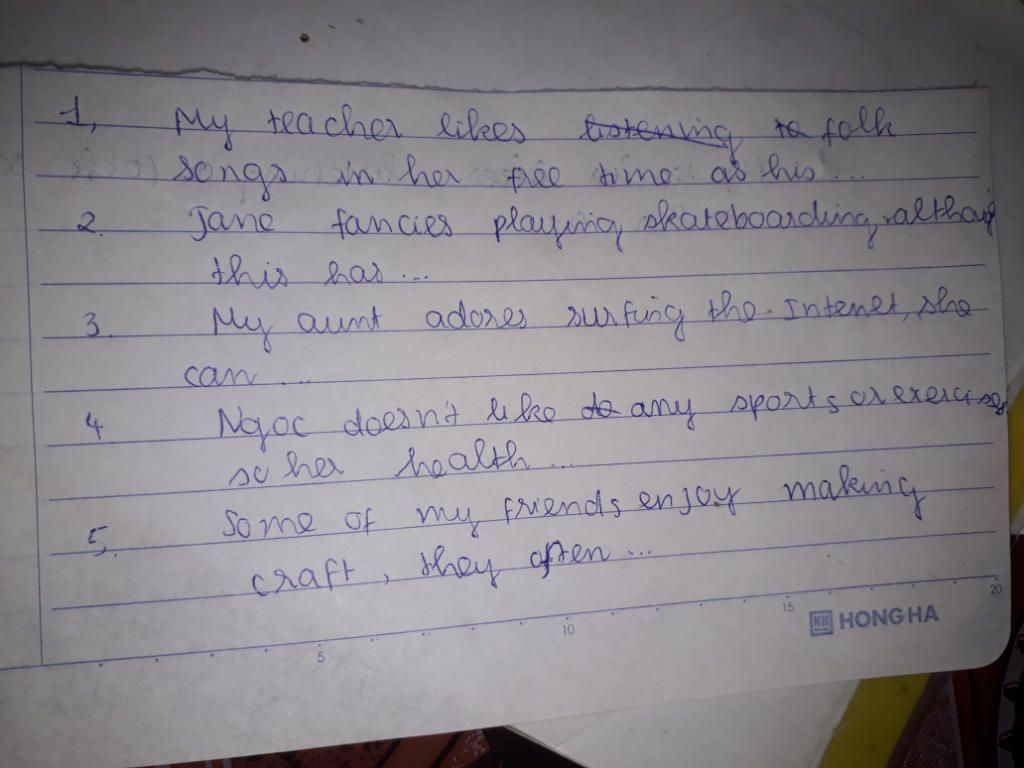 1, My teacher likes listening to folk
songs in her free time as his...
2. Jane fancies playing skateboarding, although
this has...
3. My aunt adores surfing the Internet, she
can...
4 Ngoc doesn't like to any sports or exercises
so her health...
5. Some of my friends enjoy making
craft, they often...
5 10 15 20
HH HONG HA